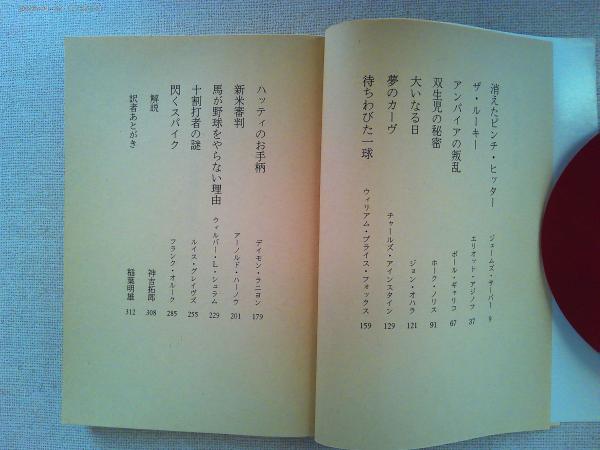 消えたピンチ・ヒッター ジェームズ・サーバー 9
ザ・ルーキー エリオット・アジノフ 37
アンパイアの叛乱 ポール・ギャリコ 67
双生児の秘密 ホーク・ノリス 91
大いなる日 ジョン・オハラ 121
夢のカーヴ チャールズ・アインスタイン 129
待ちわびた一球 ウィリアム・プライス・フォックス 159
ハッティのお手柄 デイモン・ラニヨン 179
新米審判 アーノルド・ハーノウ 201
馬が野球をやらない理由 ウィルバー・L・シュラム 229
十割打者の謎 ルイス・グレイヴズ 255
閃くスパイク フランク・オルーク 285
解説 神吉拓郎 308
訳者あとがき 稲葉明雄 312